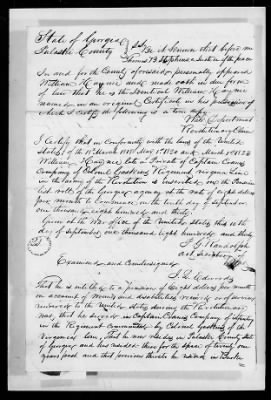 State of Georgia
Pulaski County } Be it known that before me
a Justice of the peace
In and for the County aforesaid personally appeared
William Haynie and made oath in due form
of law that he is the Identical William Haynie
named in an original Certificate in his possession of
which I certify the following is a true copy
War Department
Revolutionary Claim
I Certify that in Conformity with the laws of the United
States of the 18th March 1818 May 1st 1820 and March 1st 1823
William late a Private of Captain
Company of Colonel Gaskins Regiment Virginia Line
in the army of the Revolution is inscribed on the Pension
list rolls of the Georgia agency at the rate of Eight dollars
per month to commence on the tenth day of September
one thousand eight hundred and thirty
Given at the War office of the United States this 10th
day of September one thousand eight hundred and thirty
P. G. Randolph
act Secretary of War
Examined and Countersigned
J. L. Edwards
That he is entitled to a Pension of Eight dollars per month
on account of wounds and disabilities received or of services
rendered to the United States during the Revolutionary
war, that he served in Captain Company of
in the Regiment Commanded by Colonel Gaskins of the
Virginia Line, That he now resides in Pulaski County State
of Georgia and has resided there for the space of twenty one
years past and that previous thereto he resided in